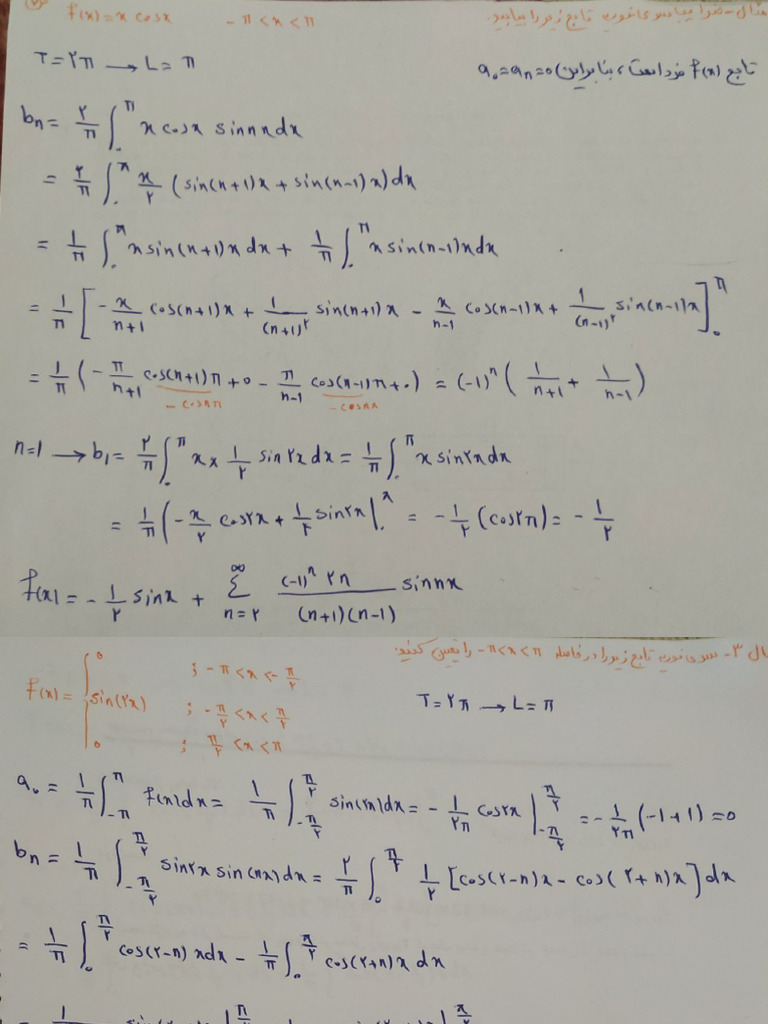 مثال - ضرایب سری فوریه تابع زیر را بیابید.
f(x) = x cosx    -π < x < π
T = ۲π → L = π    تابع f(x) فرد است، بنابراین a₀ = aₙ = 0
bₙ = ۲/π ∫₀^π x cosx sin nx dx
= ۲/π ∫₀^π x/۲ (sin(n+1)x + sin(n-1)x) dx
= 1/π ∫₀^π x sin(n+1)x dx + 1/π ∫₀^π x sin(n-1)x dx
= 1/π [ -x/(n+1) cos(n+1)x + 1/(n+1)^۲ sin(n+1)x - x/(n-1) cos(n-1)x + 1/(n-1)^۲ sin(n-1)x ]₀^π
= 1/π ( -π/(n+1) cos(n+1)π + 0 - π/(n-1) cos(n-1)π + 0 ) = (-1)^n ( 1/(n+1) + 1/(n-1) )
-cos nπ    -cos nπ
n=1 → b₁ = ۲/π ∫₀^π x × 1/۲ sin ۲x dx = 1/π ∫₀^π x sin ۲x dx
= 1/π ( -x/۲ cos ۲x + 1/۴ sin ۲x |₀^π = -1/۲ (cos ۲π) = -1/۲
f(x) = -1/۲ sinx + Σ_{n=۲}^∞ (-1)^n ۲n / (n+1)(n-1) sin nx
ال ۳- سری فوریه تابع زیر را در فاصله -π<x<π را تعیین کنید:
f(x) = { 0 ; -π < x < -π/۲
sin(۲x) ; -π/۲ < x < π/۲
0 ; π/۲ < x < π
T = ۲π → L = π
a₀ = 1/π ∫_{-π}^{π} f(x) dx = 1/π ∫_{-π/۲}^{π/۲} sin(۲x) dx = -1/۲π cos ۲x |_{-π/۲}^{π/۲} = -1/۲π (-1+1) = 0
bₙ = 1/π ∫_{-π/۲}^{π/۲} sin ۲x sin(nx) dx = ۲/π ∫₀^{π/۲} 1/۲ [cos(۲-n)x - cos(۲+n)x] dx
= 1/π ∫₀^{π/۲} cos(۲-n)x dx - 1/π ∫₀^{π/۲} cos(۲+n)x dx